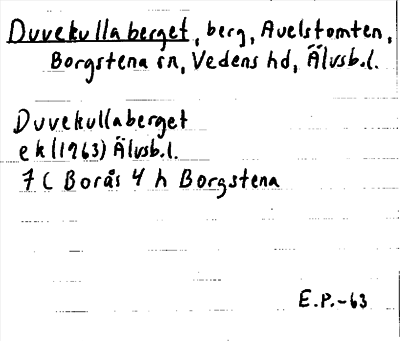 Duvekullaberget, berg, Avelstomten,
Borgstena sn, Vedens hd, Älvsb.l.
Duvekullaberget
ek (1963) Älvsb.l.
7 C Borås 4 h Borgstena
E.P.-63